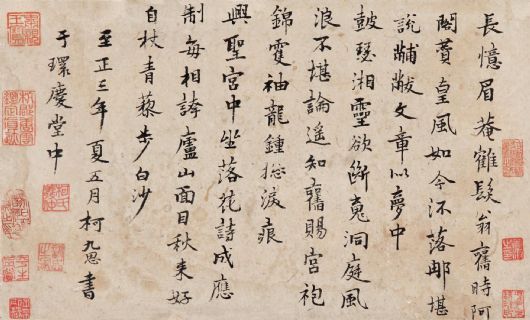 長憶眉菴鶴髮翁舊時阿
閣賛皇風如今冷落那堪
說黼黻文章似夢中
鼓瑟湘靈欲斷魂洞庭風
浪不堪論遙知舊賜宮袍
錦雙袖龍鍾揔淚痕
興聖宮中坐落花詩成應
制每相誇廬山面目秋來好
自杖青藜步白沙
至正三年夏五月柯九思書
于環慶堂中